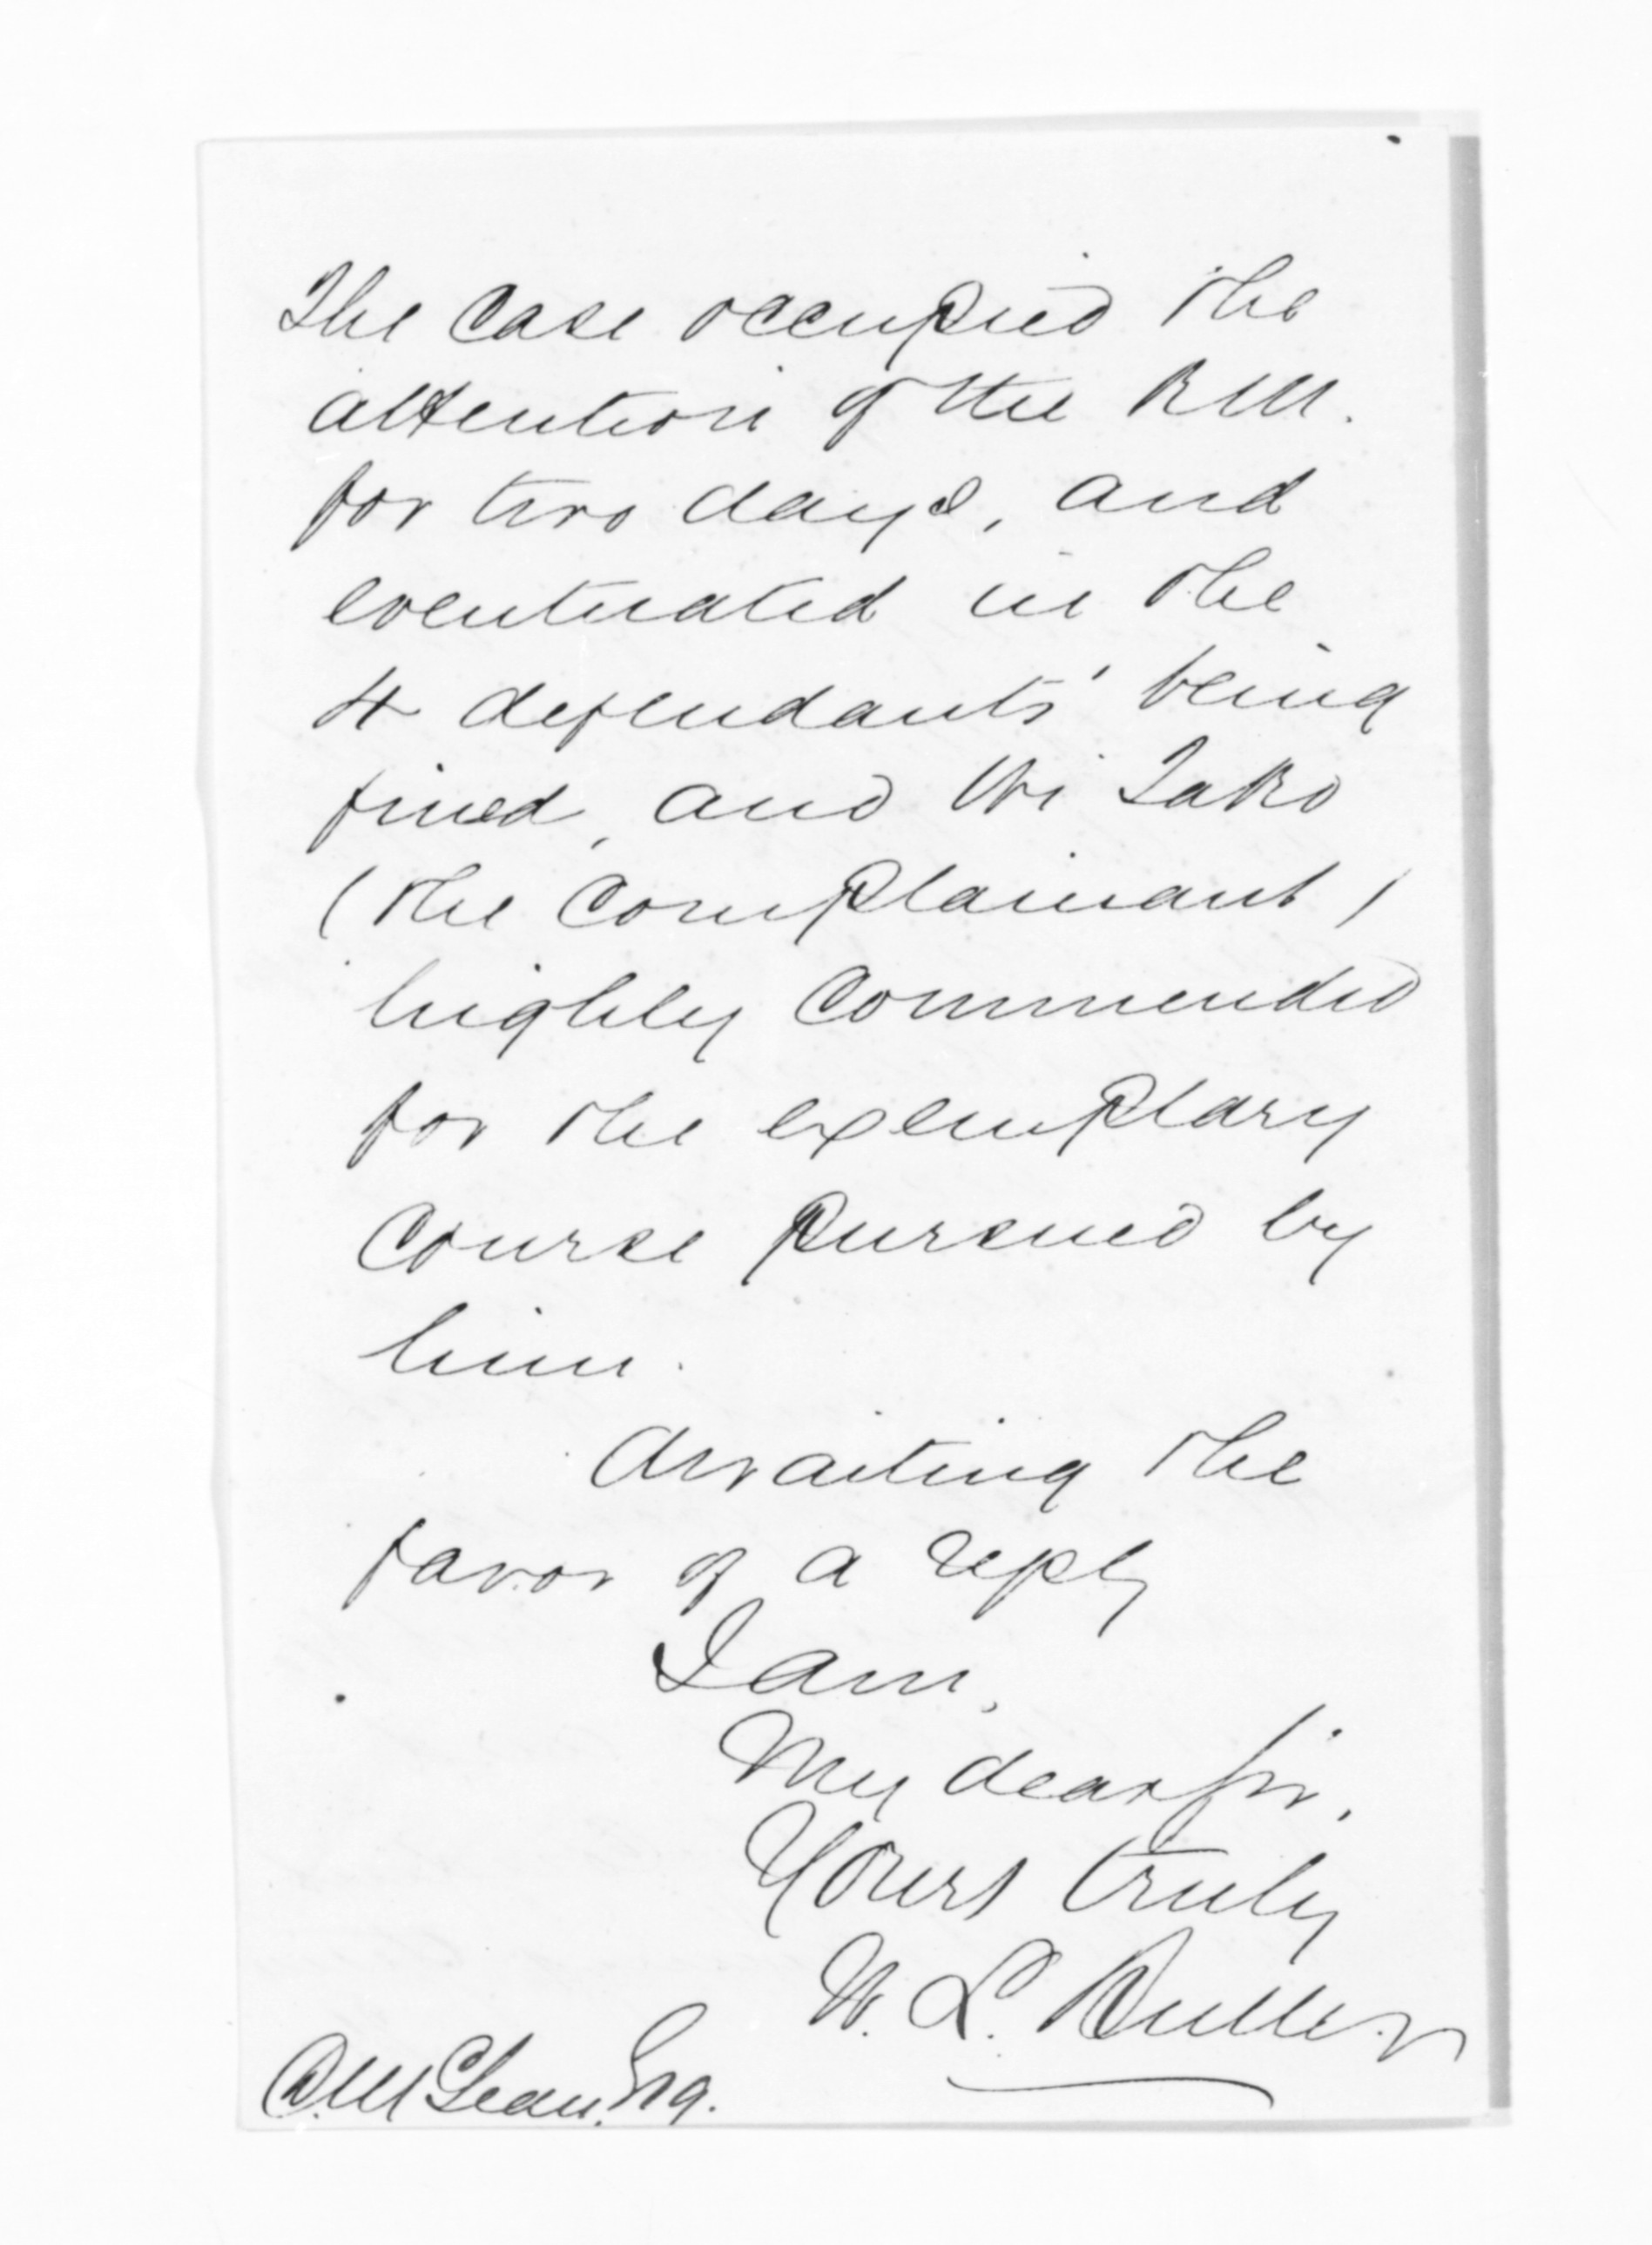 The case occupied the
attention of the R.M.
for two days, and
eventuated in the
4 defendants' being
fined, and Wi Tako
(the complainant)
highly commended
for the exemplary
course pursued by
him.
Awaiting the
favor of a reply
I am,
My dear Sir,
Yours truly
W. L. Buller
D. McLean, Esq.